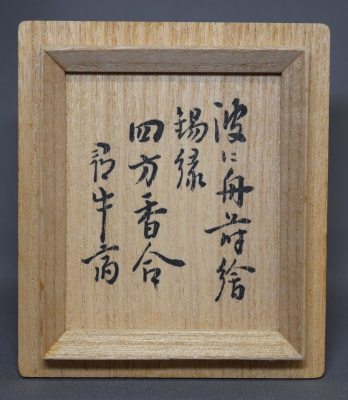 波に舟蒔繪
錫縁
四方香合
尋牛斎